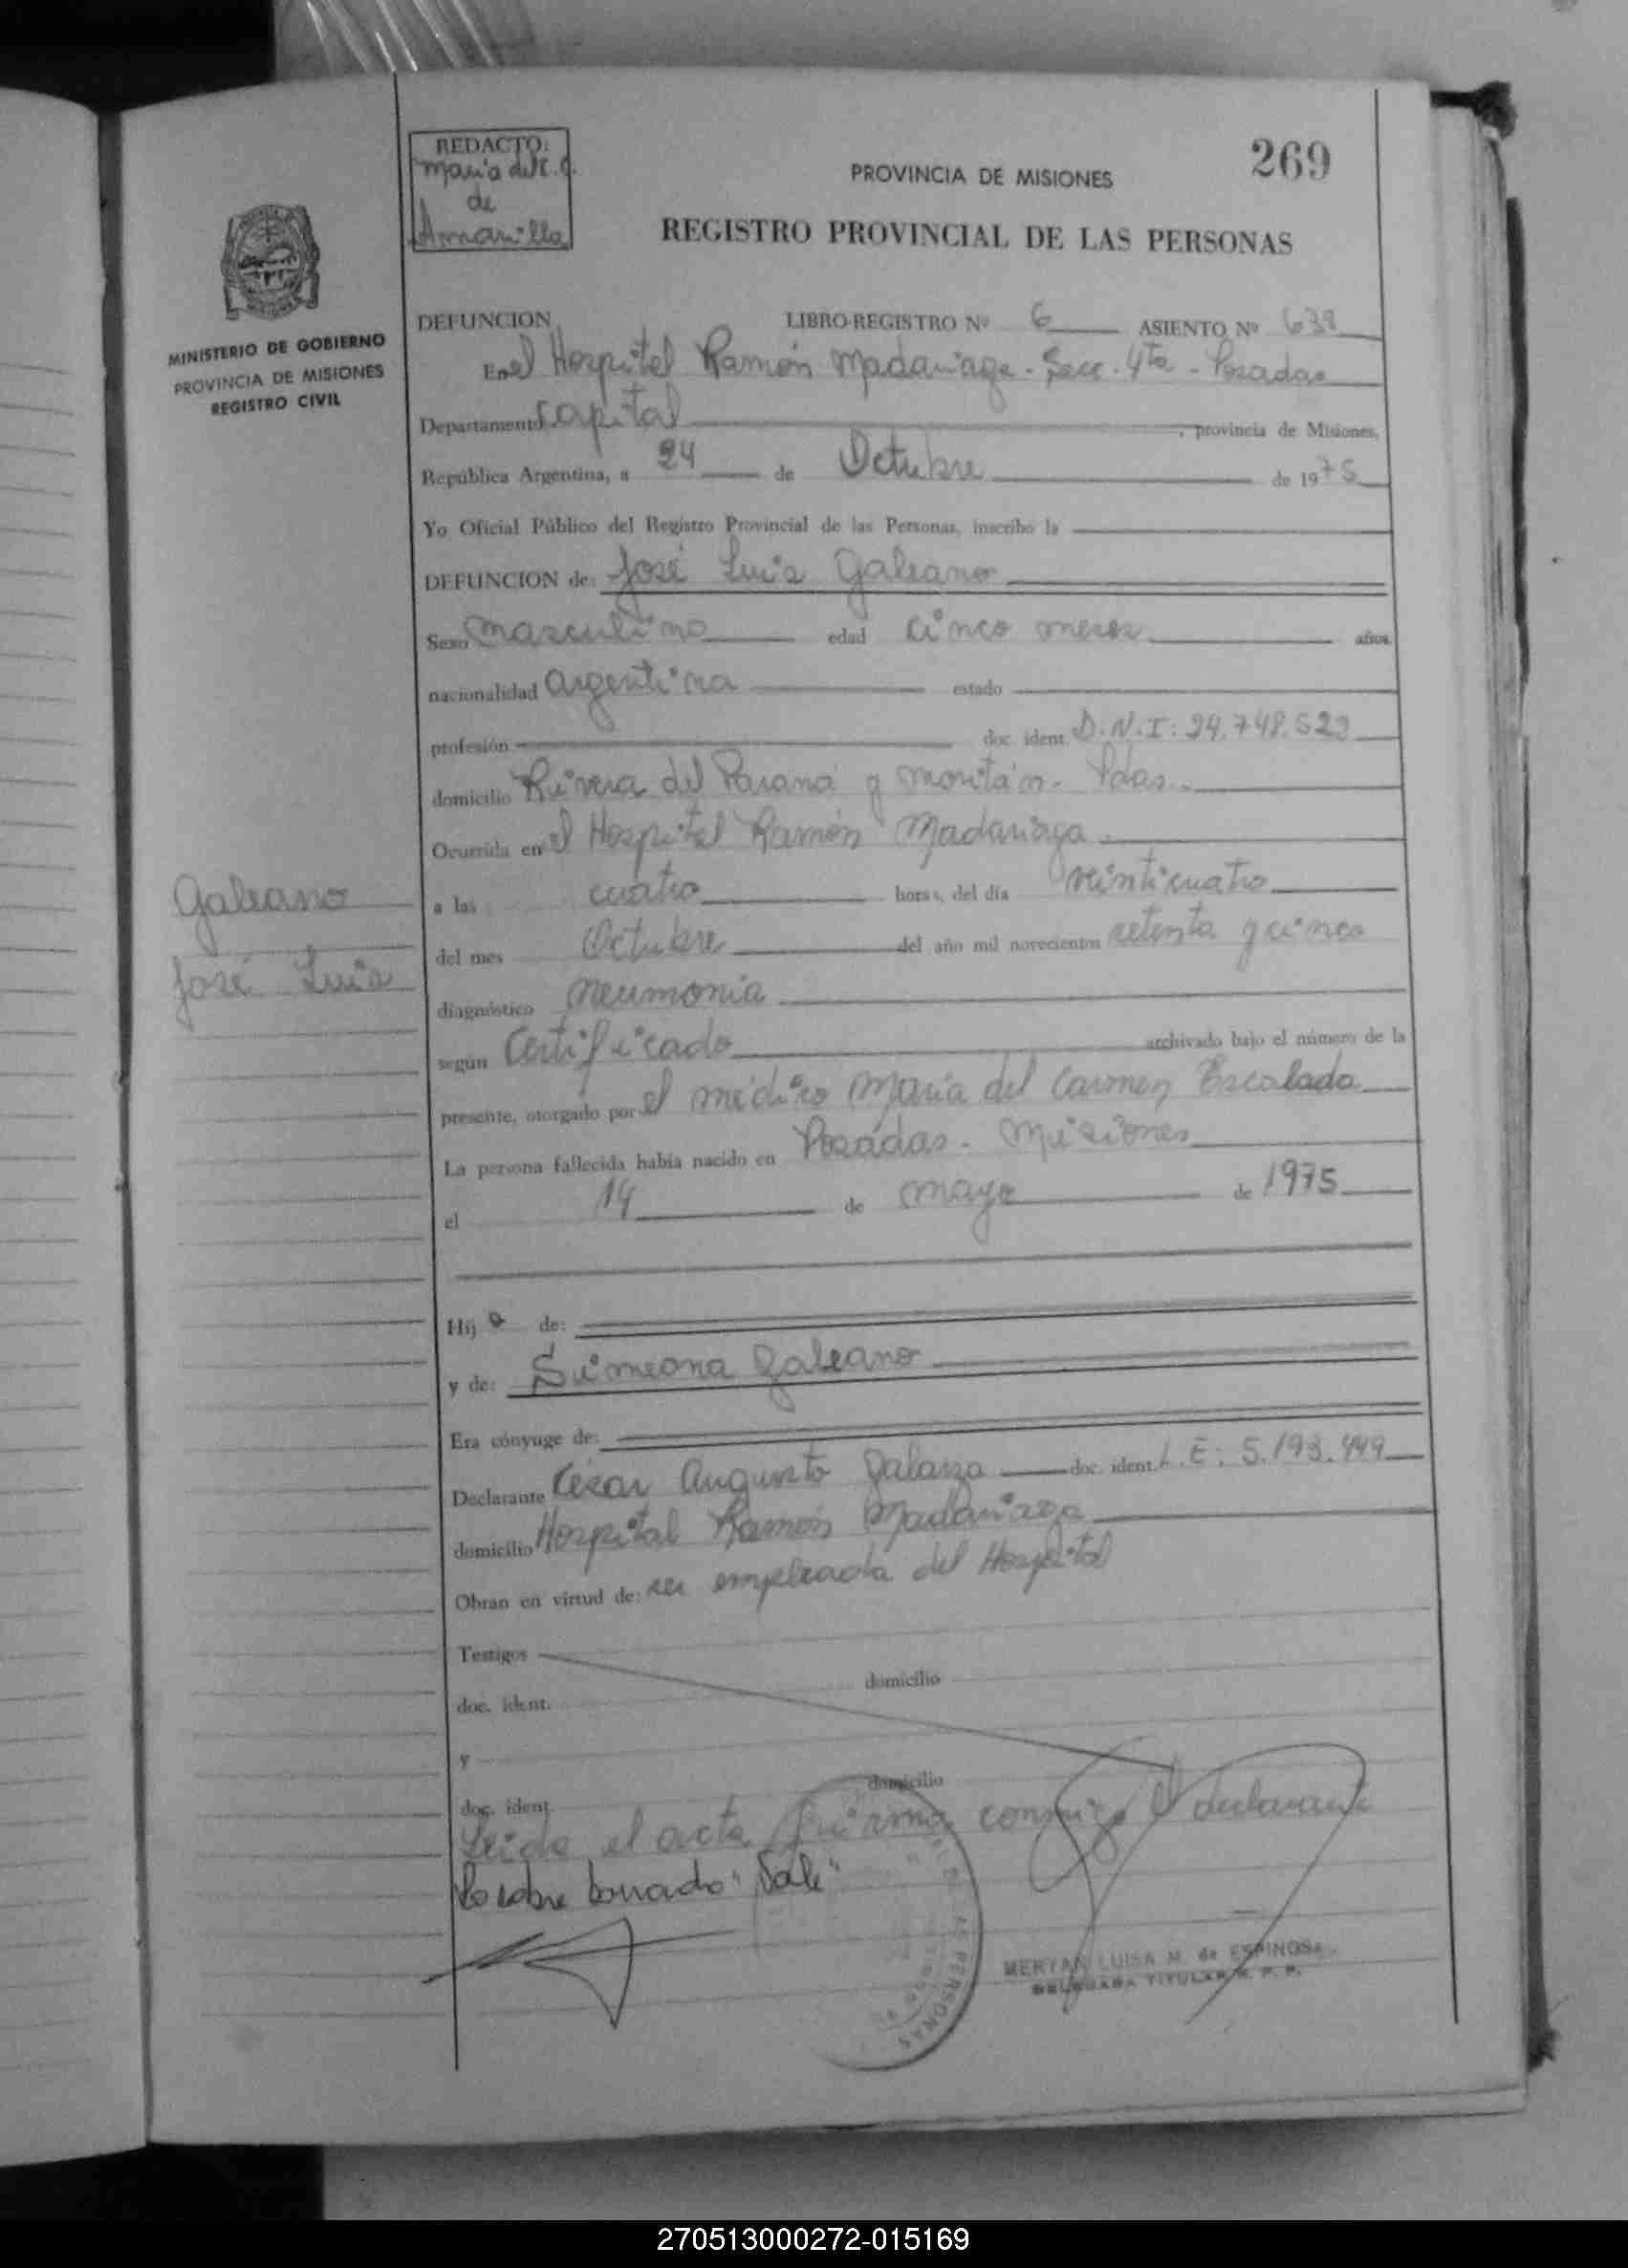 REDACTO:
María del C. G.
de
269
PROVINCIA DE MISIONES
REGISTRO PROVINCIAL DE LAS PERSONAS
MINISTERIO DE GOBIERNO
PROVINCIA DE MISIONES
REGISTRO CIVIL
DEFUNCION LIBRO-REGISTRO Nº 6 ASIENTO Nº
En el Hospital Ramón Madariaga - Secc. 4ta - Posadas
Departamento Capital , provincia de Misiones,
República Argentina, a 24 de Octubre de 1975
Yo Oficial Público del Registro Provincial de las Personas, inscribo la
DEFUNCION de: José Luis Galeano
Sexo masculino edad cinco meses años
nacionalidad argentina estado
profesión doc. ident. D.N.I: 24.748.523
domicilio Rivera del Paraná y Montán - Pdas.
Ocurrida en el Hospital Ramón Madariaga
a las cuatro horas, del día veinticuatro
del mes Octubre del año mil novecientos setenta y cinco
diagnóstico neumonia
según Certificado archivado bajo el número de la
presente, otorgado por el médico María del Carmen Escalada
La persona fallecida había nacido en Posadas - Misiones
el 14 de mayo de 1975
Galeano
José Luis
Hij o de:
y de: Simeona Galeano
Era cónyuge de:
Declarante César Augusto Galarza doc. ident. L.E: 5.193.449
domicilio Hospital Ramón Madariaga
Obran en virtud de: ser empleada del Hospital
Testigos
domicilio
doc. ident.
y
domicilio
doc. ident.
Leida el acta firma conmigo el declarante
Lo sobre borrado "Vale"
PERSONAS
MERYAN LUISA M. de ESPINOSA
DELEGADA TITULAR R. P. P.
270513000272-015169